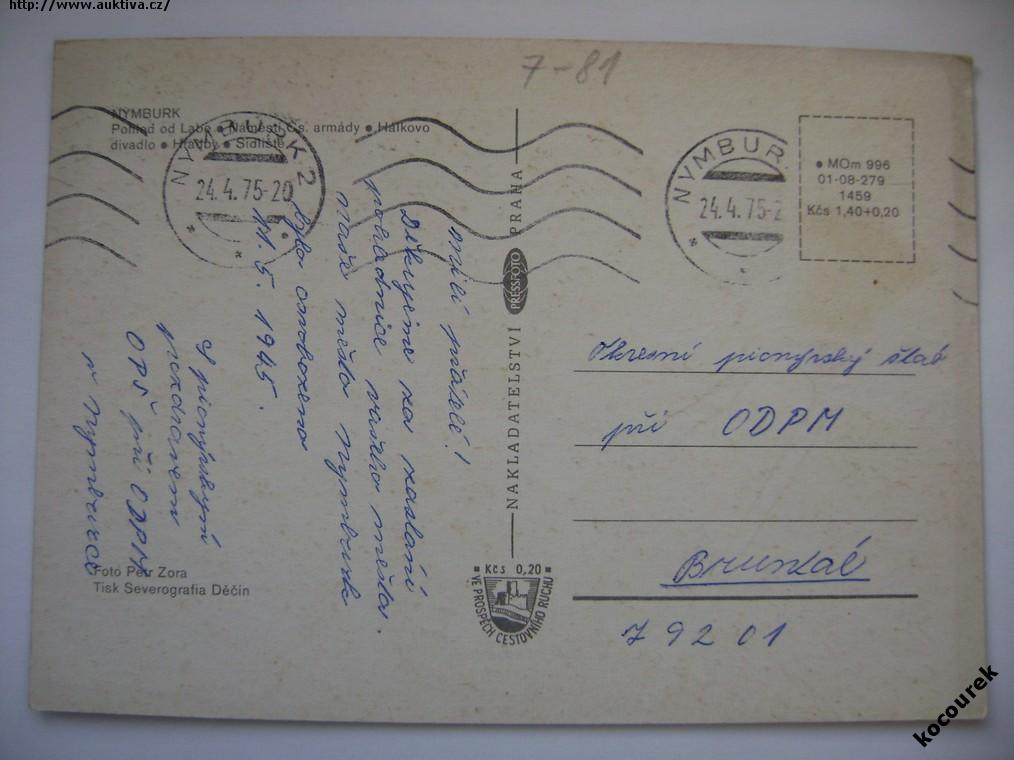 http://www.auktiva.cz/
7-81
NYMBURK
Pohled od Labe ● Náměstí Čs. armády ● Hálkovo
divadlo ● Hradby ● Sídliště
NYMBURK 2
24.4.75-20
NYMBUR
24.4.75-2
● MOm 996
01-08-279
1459
Kčs 1,40+0,20
Milí přátelé!
Děkujeme za zaslání
pohlednice vašeho města.
Naše město Nymburk
bylo osvobozeno
5. 1945.
S pionýrským
pozdravem
OPŠ při ODPM
v Nymburce
NAKLADATELSTVÍ PRESSFOTO PRAHA
Okresní pionýrský štáb
při ODPM
Bruntál
79201
Foto Petr Zora
Tisk Severografia Děčín
Kčs 0,20
VE PROSPĚCH CESTOVNÍHO RUCHU
kocourek